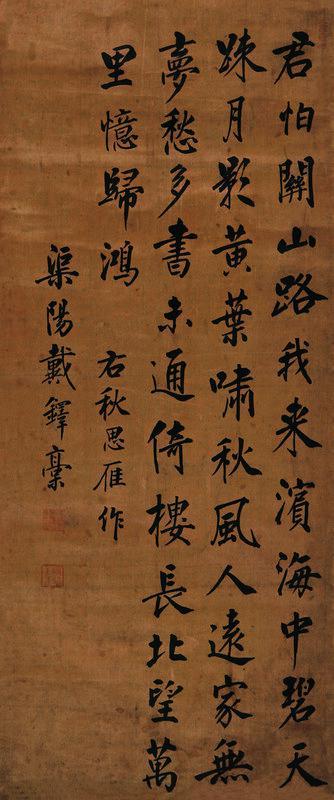 君怕關山路我来濱海中碧天
踈月影黄葉嘯秋風人遠家無
夢愁多書未通倚樓長北望萬
里憶歸鴻
右秋思雁作
渠陽戴鐸稾